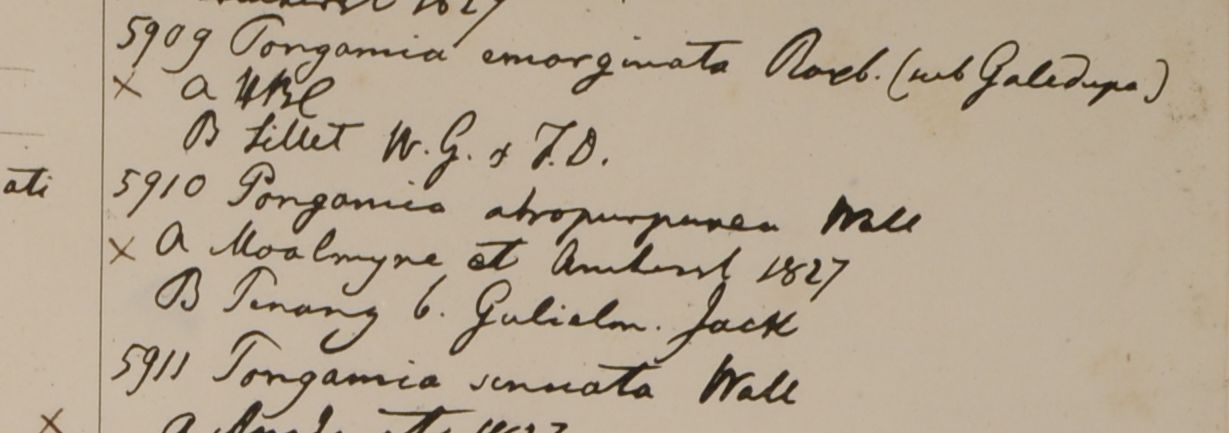 Amherst 1827
5909 Pongamia emarginata Roxb. (sub Galedupa)
× a HBC
B Sillet W.G. & F.D.
ati 5910 Pongamia atropurpurea Wall
× a Moalmyne et Amherst 1827
B Penang b. Gulielm. Jack
5911 Pongamia sinuata Wall
× a 1827